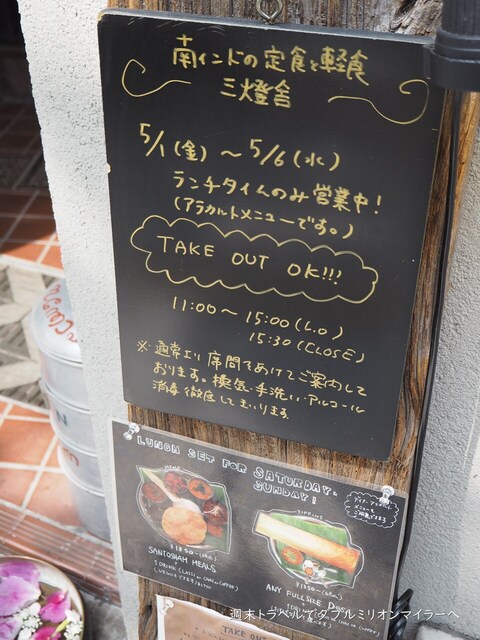 南インドの定食と軽食
三燈舎
5/1(金)～5/6(水)
ランチタイムのみ営業中!
(アラカルトメニューです。)
TAKE OUT OK!!!
11:00～15:00(L.O)
15:30(CLOSE)
※通常より席間をあけてご案内して
おります。換気・手洗い・アルコール
消毒徹底してまいります。
LUNCH SET FOR SATURDAY &
SUNDAY!
SANTOSHAM MEALS
TIFFINS
ANY FULLSIZE
TAKE OUT
週末トラベルでダブルミリオンマイラーへ